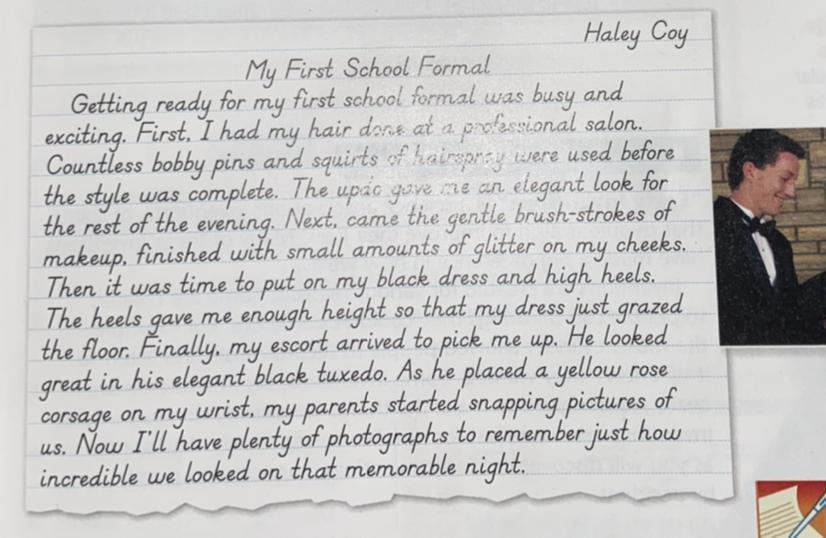 Haley Coy
My First School Formal
Getting ready for my first school formal was busy and
exciting. First, I had my hair done at a professional salon.
Countless bobby pins and squirts of hairspray were used before
the style was complete. The updo gave me an elegant look for
the rest of the evening. Next, came the gentle brush-strokes of
makeup, finished with small amounts of glitter on my cheeks.
Then it was time to put on my black dress and high heels.
The heels gave me enough height so that my dress just grazed
the floor. Finally, my escort arrived to pick me up. He looked
great in his elegant black tuxedo. As he placed a yellow rose
corsage on my wrist, my parents started snapping pictures of
us. Now I'll have plenty of photographs to remember just how
incredible we looked on that memorable night.